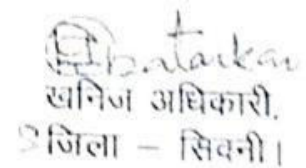 खनिज अधिकारी,
जिला – सिवनी।